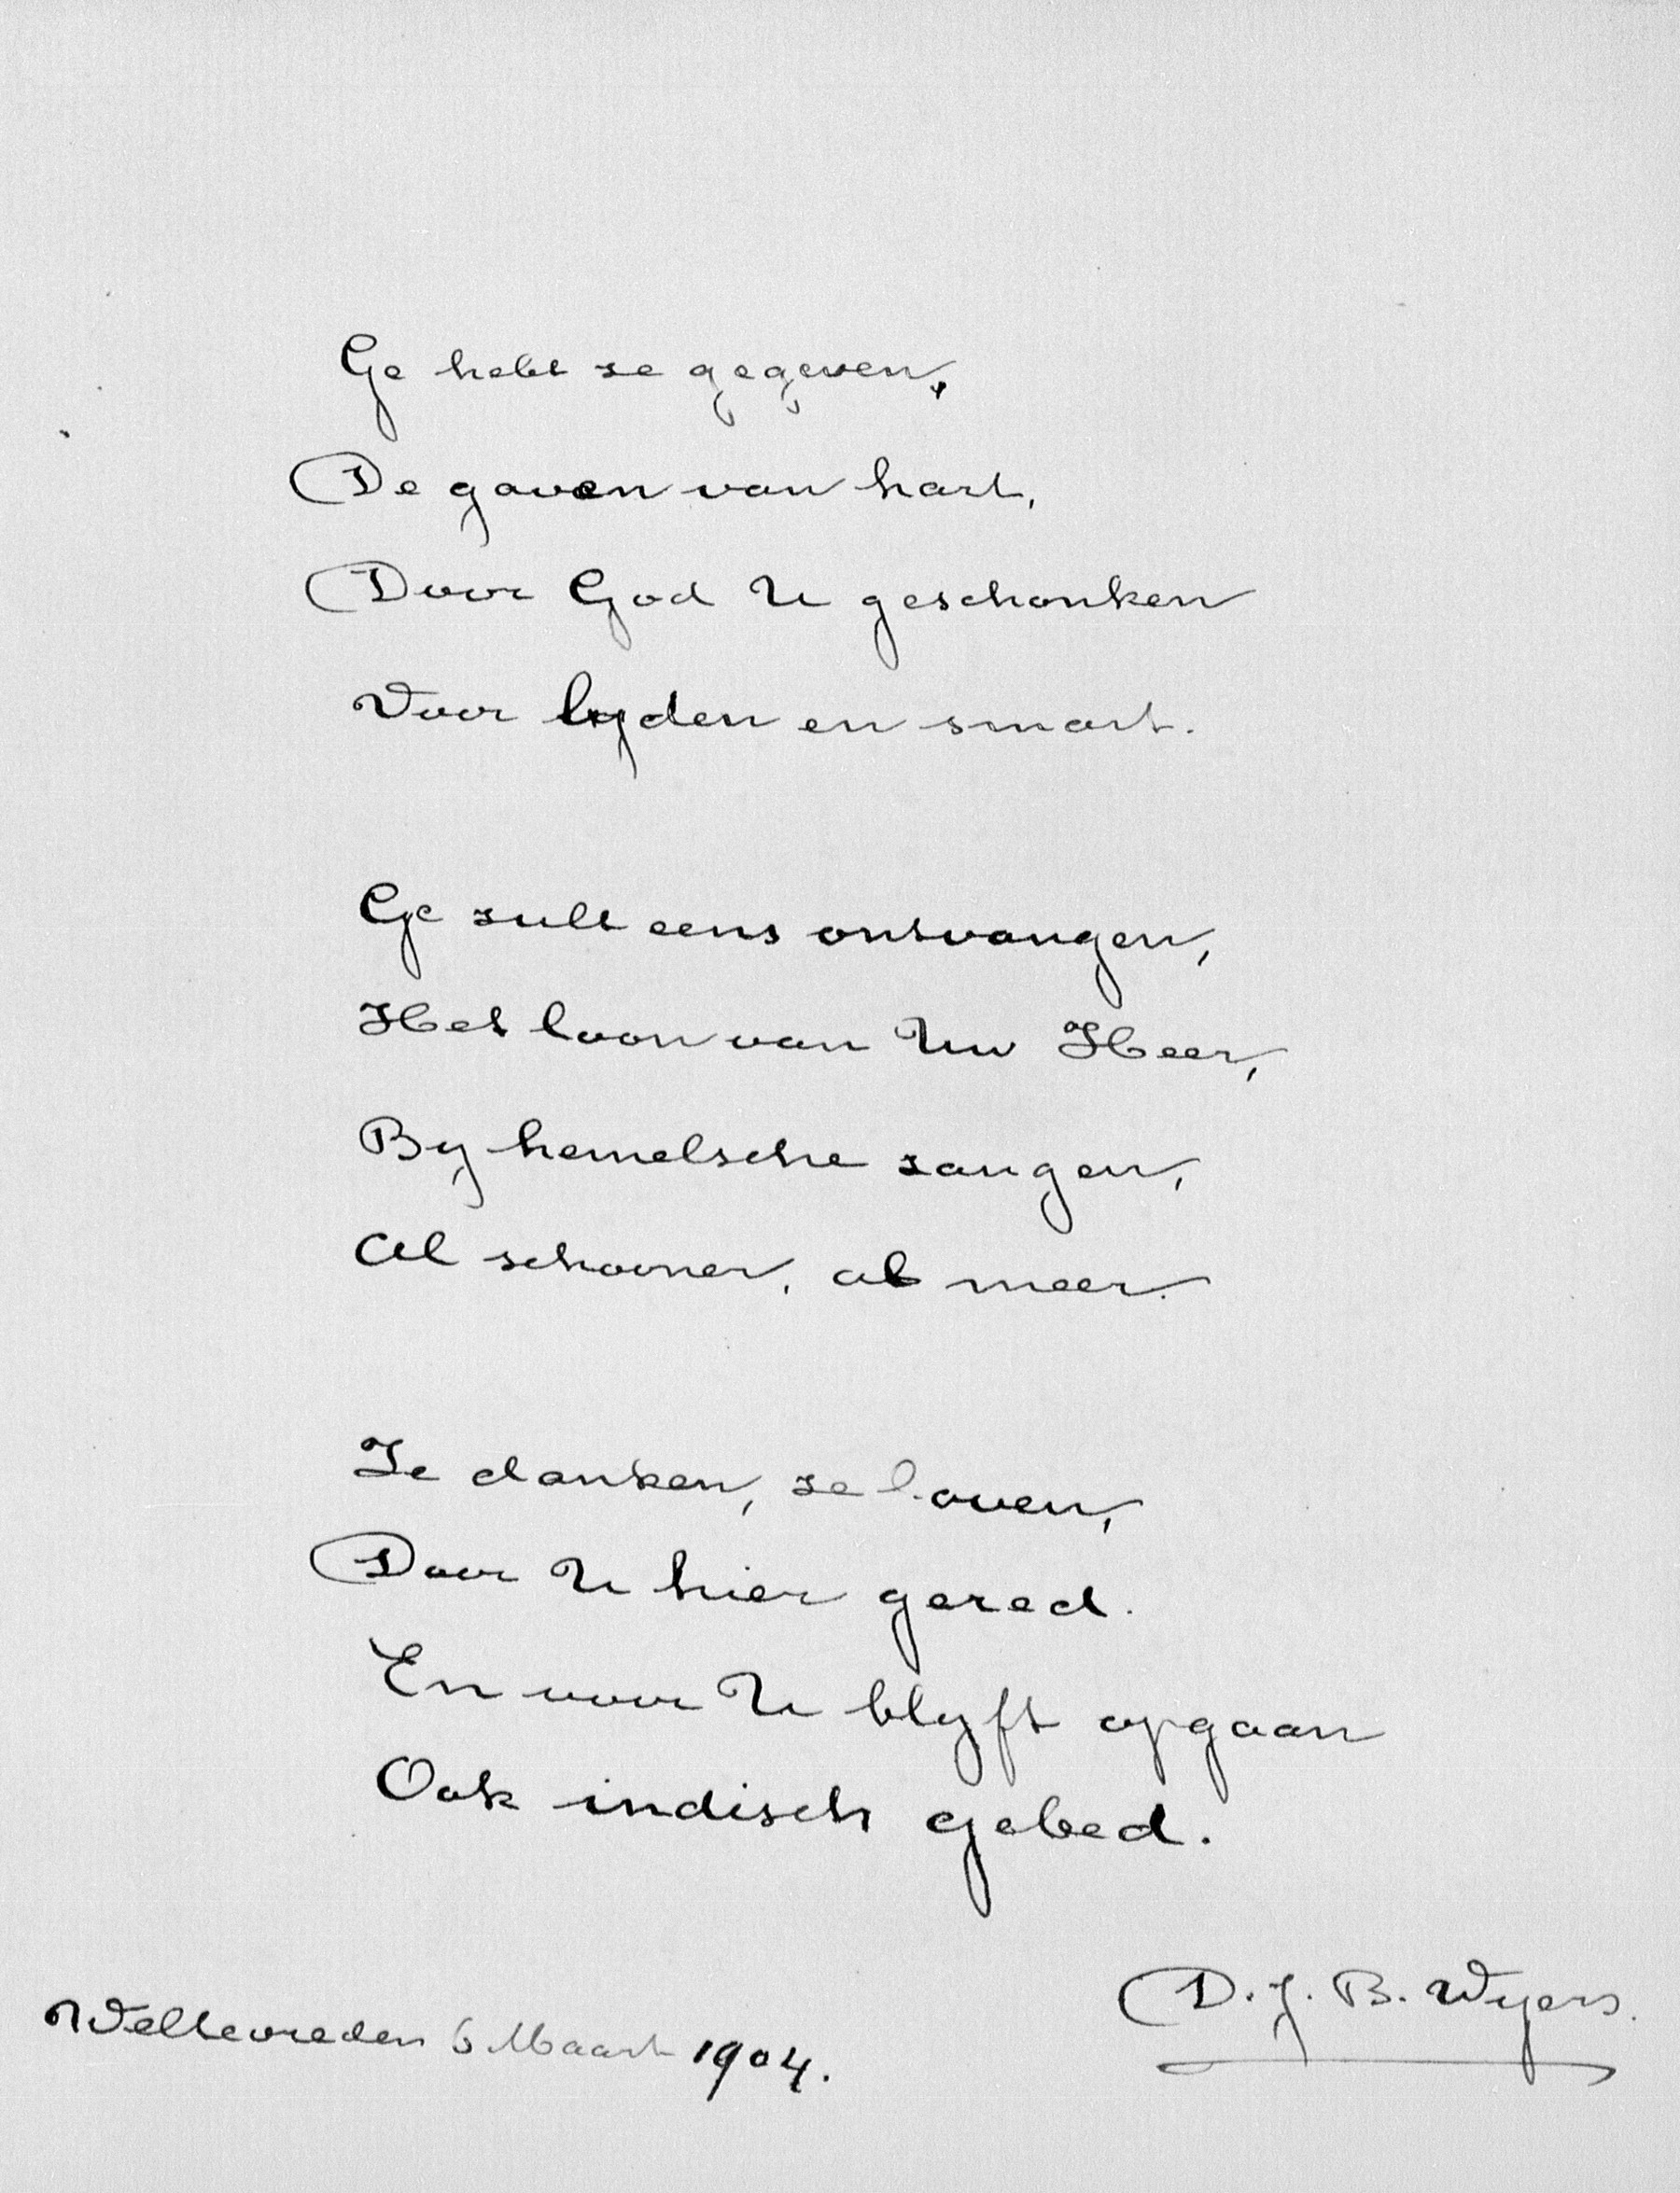 Ge hebt ze gegeven,
De gaven van hart,
Door God U geschonken
Voor lyden en smart.
Ge zult eens ontvangen,
Het loon van Uw Heer,
By hemelsche zangen,
Al schooner, al meer.
Ze danken, ze loven,
Door U hier gered.
En voor U blyft opgaan
Ook indisch gebed.
D. J. B. Wyers.
Weltevreden 6 Maart 1904.